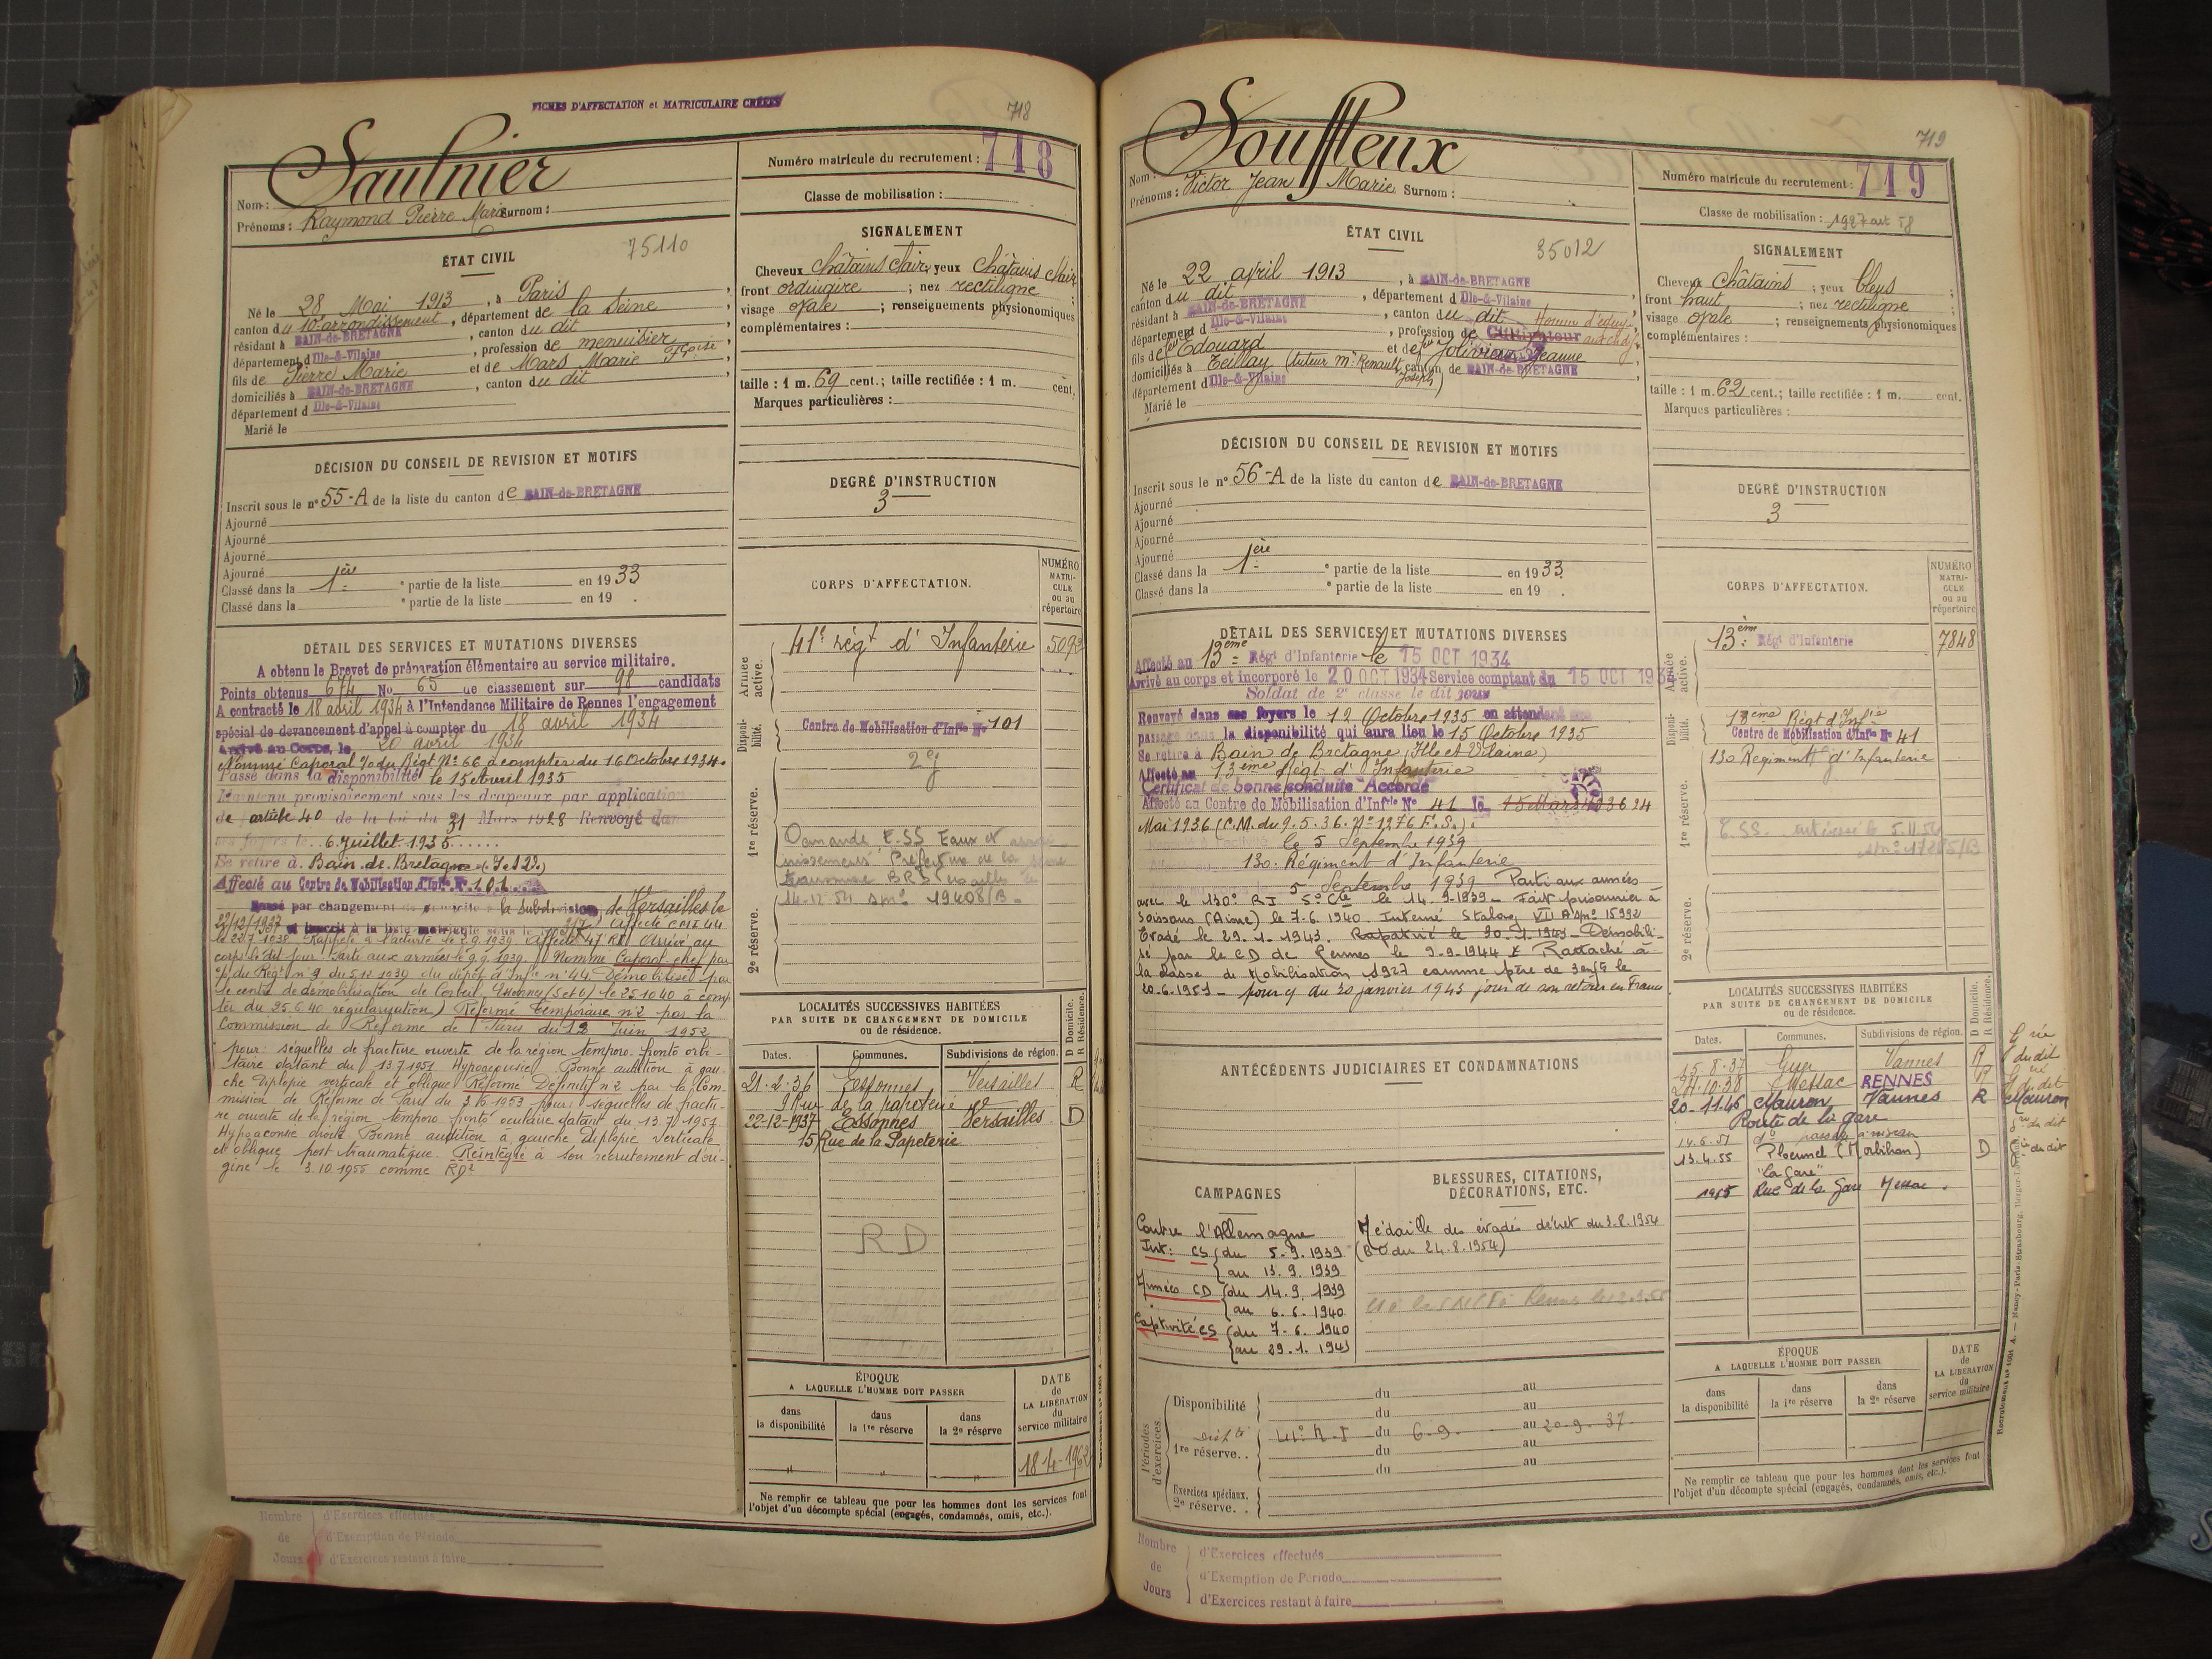 FICHES D'AFFECTATION et MATRICULAIRE CRÉÉES
718
Nom : Saulnier
Prénoms : Raymond Pierre Marie Surnom :
ÉTAT CIVIL
75110
Né le 28 Mai 1913, à Paris,
canton du 10e arrondissement, département de la Seine,
résidant à BAIN-de-BRETAGNE, canton du dit
département d Ille-&-Vilaine, profession de menuisier,
fils de Pierre Marie et de Mars Marie Fçoise,
domiciliés à BAIN-de-BRETAGNE, canton du dit
département d Ille-&-Vilaine
Marié le
DÉCISION DU CONSEIL DE REVISION ET MOTIFS
Inscrit sous le n° 55-A de la liste du canton de BAIN-de-BRETAGNE
Ajourné
Ajourné
Ajourné
Ajourné
Classé dans la 1ère e partie de la liste en 1933
Classé dans la e partie de la liste en 19 .
DÉTAIL DES SERVICES ET MUTATIONS DIVERSES
A obtenu le Brevet de préparation élémentaire au service militaire.
Points obtenus 674 No 65 de classement sur 98 candidats
A contracté le 18 avril 1934 à l'Intendance Militaire de Rennes l'engagement
spécial de devancement d'appel à compter du 18 avril 1934
Arrivé au Corps, le 20 avril 1934
Nommé Caporal O du Régt N° 66 à compter du 16 Octobre 1934.
Passé dans la disponibilité le 15 Avril 1935
Maintenu provisoirement sous les drapeaux par application
de article 40 de la loi du 31 Mars 1928 Renvoyé dans
ses foyers le 6 Juillet 1935
Se retire à Bain de Bretagne (I et V.)
Affecté au Centre de Mobilisation d'Infie N° 101
Passé par changement de domicile à la subdivision de Versailles le
22/12/1937 et inscrit à la liste matricule sous le 217 Affecté CMI 44
le 22.7.1938 Rappelé à l'activité le 2.9.1939 Affecté 47 RI Arrivé au
corps le dit jour Parti aux armées le 9.9.1939 Nommé Caporal chef par
O/ du Régt n° 9 du 5.12.1939 du dépôt d'Infie n° 44. Démobilisé par
le centre de démobilisation de Corbeil Essonnes (S et O) le 25.10.40 à comp
ter du 25.6.40 régularisation) Réformé temporaire n°2 par la
Commission de Réforme de Paris du 12 Juin 1952
pour : séquelles de fracture ouverte de la région temporo. fronto orbi-
taire datant du 13.7.1951 Hypoacousie. Bonne audition à gau-
che Diplopie verticale et oblique Réformé Définitif n°2 par la Com-
mission de Réforme de Paris du 3.6.1953 pour : séquelles de fractu-
re ouverte de la région temporo fronto oculaire datant du 13.7.1951
Hypoacousie droite Bonne audition à gauche Diplopie verticale
et oblique post traumatique. Réintégré à son recrutement d'ori-
gine le 3.10.1955 comme RD2
Nombre de Jours
d'Exercices effectués
d'Exemption de Période
d'Exercices restant à faire
Numéro matricule du recrutement : 718
Classe de mobilisation :
SIGNALEMENT
Cheveux Châtains clairs yeux Châtains clairs
front ordinaire ; nez rectiligne ;
visage ovale ; renseignements physionomiques
complémentaires :
taille : 1 m. 69 cent.; taille rectifiée : 1 m. cent.
Marques particulières :
DEGRÉ D'INSTRUCTION
3
CORPS D'AFFECTATION.
NUMÉRO MATRI-CULE ou au répertoire
Armée active.
41e régt d'Infanterie 5093
Disponi-bilité.
Centre de Mobilisation d'Infie N° 101
1re réserve.
2e réserve.
LOCALITÉS SUCCESSIVES HABITÉES
PAR SUITE DE CHANGEMENT DE DOMICILE
ou de résidence.
D Domicile. R Résidence.
Dates. Communes. Subdivisions de région.
21-2-36 Essonnes Versailles R
9 Rue de la papeterie
22-12-1937 Essonnes Versailles D
15 Rue de la Papeterie
RD
ÉPOQUE
A LAQUELLE L'HOMME DOIT PASSER
dans la disponibilité
dans la 1re réserve
dans la 2e réserve
DATE de LA LIBÉRATION du service militaire
" " " 18-4-1962
Ne remplir ce tableau que pour les hommes dont les services font
l'objet d'un décompte spécial (engagés, condamnés, omis, etc.).
719
Nom : Souffleux
Prénoms : Victor Jean Marie Surnom :
ÉTAT CIVIL
35012
Né le 22 avril 1913, à BAIN-de-BRETAGNE
canton du dit, département d Ille-&-Vilaine
résidant à BAIN-de-BRETAGNE, canton du dit
département d Ille-&-Vilaine, profession de Cultivateur
fils de feu Edouard et de feu Jolivieux Jeanne
domiciliés à Teillay (tuteur Mr Renault Joseph) canton de BAIN-de-BRETAGNE
département d Ille-&-Vilaine
Marié le
DÉCISION DU CONSEIL DE REVISION ET MOTIFS
Inscrit sous le n° 56-A de la liste du canton de BAIN-de-BRETAGNE
Ajourné
Ajourné
Ajourné
Ajourné
Classé dans la 1ère e partie de la liste en 1933
Classé dans la e partie de la liste en 19 .
DÉTAIL DES SERVICES ET MUTATIONS DIVERSES
Affecté au 13ème Régt d'Infanterie le 15 OCT 1934
Arrivé au corps et incorporé le 20 OCT 1934 Service comptant du 15 OCT 1934
Soldat de 2e classe le dit jour
Renvoyé dans ses foyers le 12 Octobre 1935 en attendant son
passage dans la disponibilité qui aura lieu le 15 Octobre 1935
Se retire à Bain de Bretagne (Ille et Vilaine)
Affecté au 13ème Régt d'Infanterie
Certificat de bonne conduite "Accordé"
Affecté au Centre de Mobilisation d'Infrie N° 41 le 15 Mars 1936 24
Mai 1936 (C.M. du 9.5.36. N° 1276 F.S.).
le 5 Septembre 1939
130. Régiment d'Infanterie
5 Septembre 1939 Parti aux armées
avec le 130e RI 5e Cie le 14.9.1939 - Fait prisonnier à
Soissons (Aisne) le 7.6.1940. Interné Stalag VII A n° 15992
Evadé le 29.1.1943. Rapatrié le 30.1.1943 - Démobili-
sé par le CD de Rennes le 9-9-1944 Rattaché à
la classe de Mobilisation 1927 comme père de 3 enfts le
20.6.1951 - pour y du 30 janvier 1943 jour de son retour en France
ANTÉCÉDENTS JUDICIAIRES ET CONDAMNATIONS
CAMPAGNES
Contre l'Allemagne
Int: CS du 5.9.1939
au 13.9.1939
Armées CD du 14.9.1939
au 6.6.1940
Captivité CS du 7.6.1940
au 29.1.1943
BLESSURES, CITATIONS, DÉCORATIONS, ETC.
Médaille des évadés décret du 3.8.1954
(BO du 24.8.1954)
Périodes d'exercices
Disponibilité du au
du au
41e R.I du 6-9- au 20-9-37
1re réserve. . du au
du au
Exercices spéciaux.
2e réserve. .
Nombre de Jours
d'Exercices effectués
d'Exemption de Période
d'Exercices restant à faire
Numéro matricule du recrutement : 719
Classe de mobilisation : 1927 art 58
SIGNALEMENT
Cheveux châtains ; yeux bleus ;
front haut ; nez rectiligne
visage ovale ; renseignements physionomiques
complémentaires :
taille : 1 m. 62 cent.; taille rectifiée : 1 m. cent.
Marques particulières :
DEGRÉ D'INSTRUCTION
3
CORPS D'AFFECTATION.
NUMÉRO MATRI-CULE ou au répertoire
Armée active.
13ème Régt d'Infanterie 7848
Disponi-bilité.
Centre de Mobilisation d'Infie N° 41
130 Régiment d'Infanterie
1re réserve.
2e réserve.
LOCALITÉS SUCCESSIVES HABITÉES
PAR SUITE DE CHANGEMENT DE DOMICILE
ou de résidence.
D Domicile. R Résidence.
Dates. Communes. Subdivisions de région.
15-8-37 Guer Vannes R
24-10-38 Messac RENNES R
20-11-46 Mauron Vannes R
Route de la gare
14.6.51 do passage à niveau
13.4.55 Ploermel (Morbihan) D
"La Gare"
Rue de la Gare Messac.
ÉPOQUE
A LAQUELLE L'HOMME DOIT PASSER
dans la disponibilité
dans la 1re réserve
dans la 2e réserve
DATE de LA LIBÉRATION du service militaire
Ne remplir ce tableau que pour les hommes dont les services font
l'objet d'un décompte spécial (engagés, condamnés, omis, etc.).